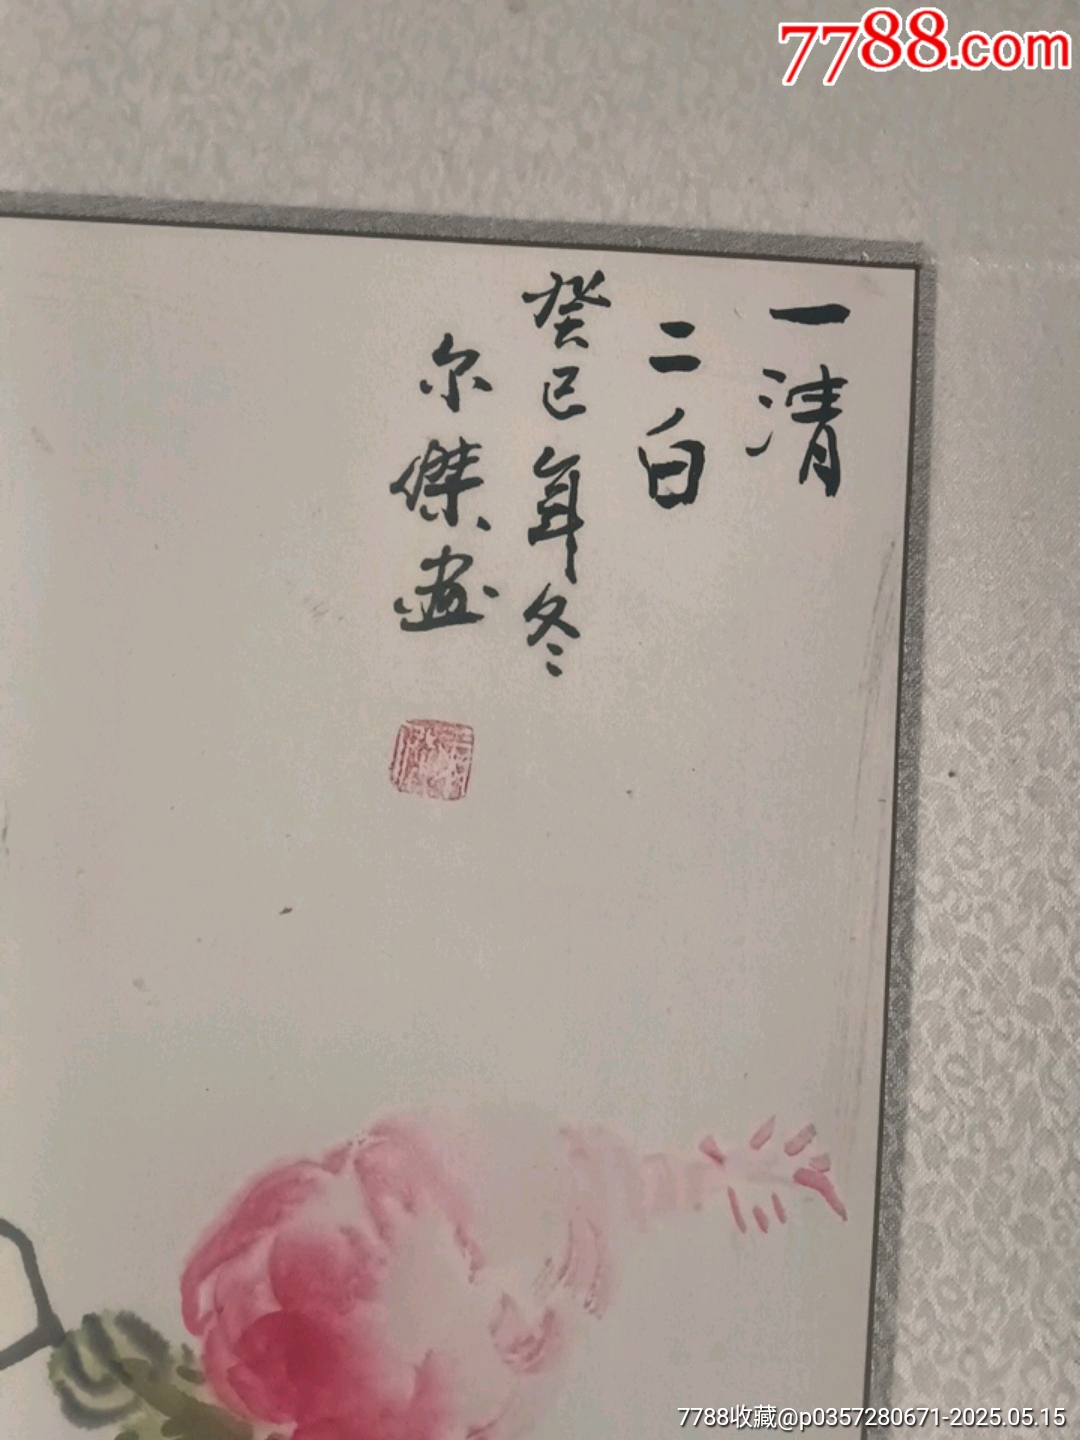 7788.com
一清
二白
癸巳年冬
尔傑画
7788收藏@p0357280671-2025.05.15